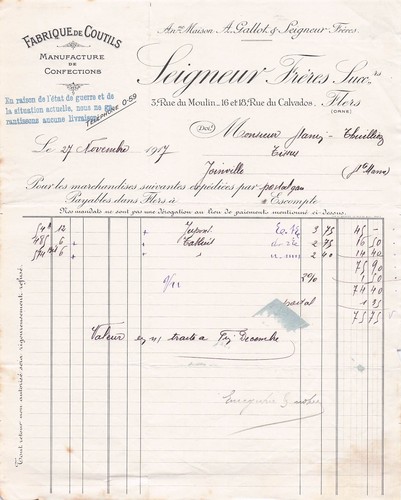 FABRIQUE DE COUTILS
MANUFACTURE
DE
CONFECTIONS
Anne Maison A. Gallot & Seigneur Frères
Seigneur Frères Succrs
3, Rue du Moulin _ 16 et 18, Rue du Calvados. Flers
(ORNE)
En raison de l'état de guerre et de
la situation actuelle, nous ne ga-
rantissons aucune livraison.
TÉLÉPHONE 0-59
Doit Monsieur
Tissus
Le 27 Novembre 1917
Joinville
Pour les marchandises suivantes expédiées par
Payables dans Flers à Escompte
Nos mandats ne sont pas une dérogation au lieu de paiements mentionné ci-dessus.
12 Jupons 3 75 45 -
485 6 2 75 16 50
6 2 40 14 40
75 90
2% 1 50
74 40
postal 1 35
75 75
Valeur en n/ traite a Fin Decembre
Tout retour non autorisé sera rigoureusement refusé.